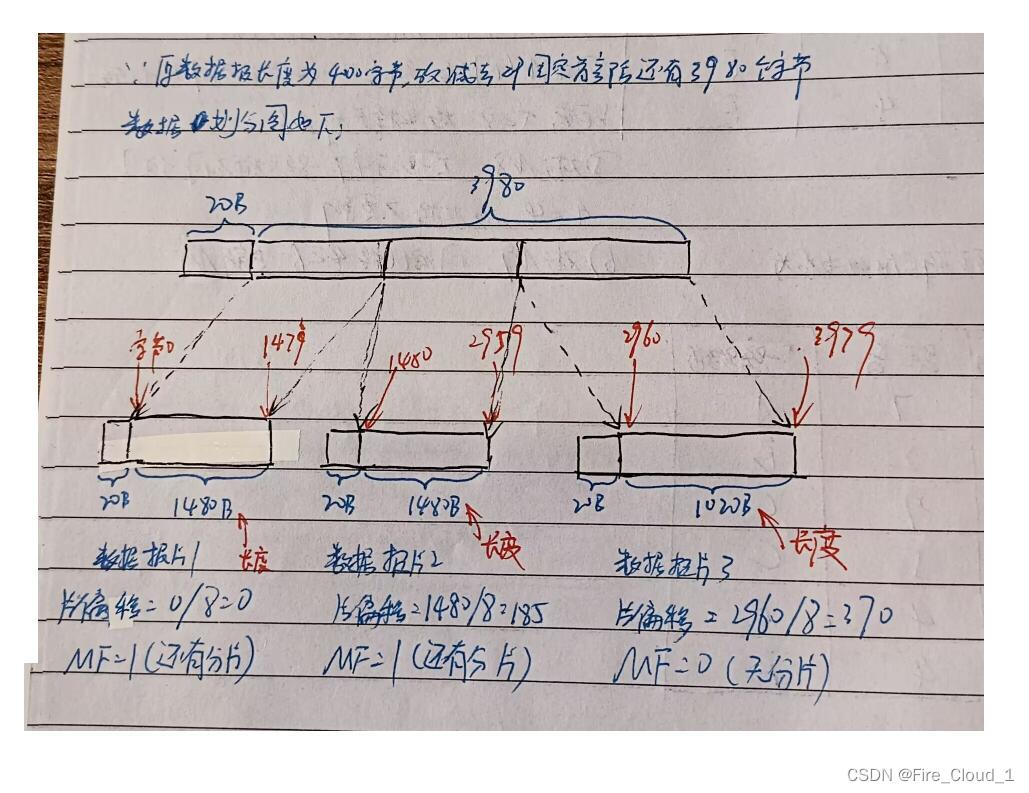 ∵原数据报长度为400字节,故减去20固定首部后还有3980个字节
数据划分图如下:
3980
20B
字节0
1479
1480
2959
2960
3979
20B
1480B
20B
1480B
20B
1020B
长度
长度
长度
数据报片1
数据报片2
数据报片3
片偏移=0/8=0
片偏移=1480/8=185
片偏移=2960/8=370
MF=1(还有分片)
MF=1(还有分片)
MF=0(无分片)
CSDN @Fire_Cloud_1